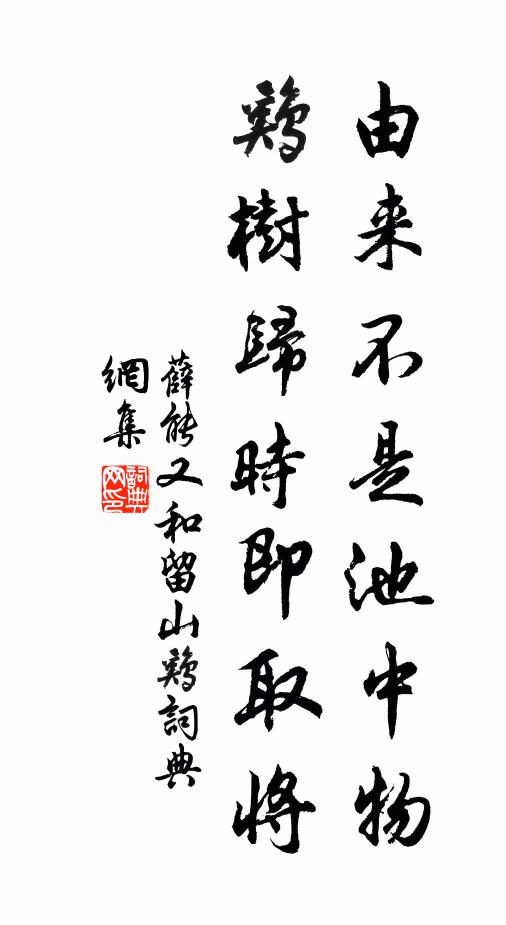 由来不是池中物
鷄樹歸時即取將
薛能又和留山鷄詞典
網集
詞典網印